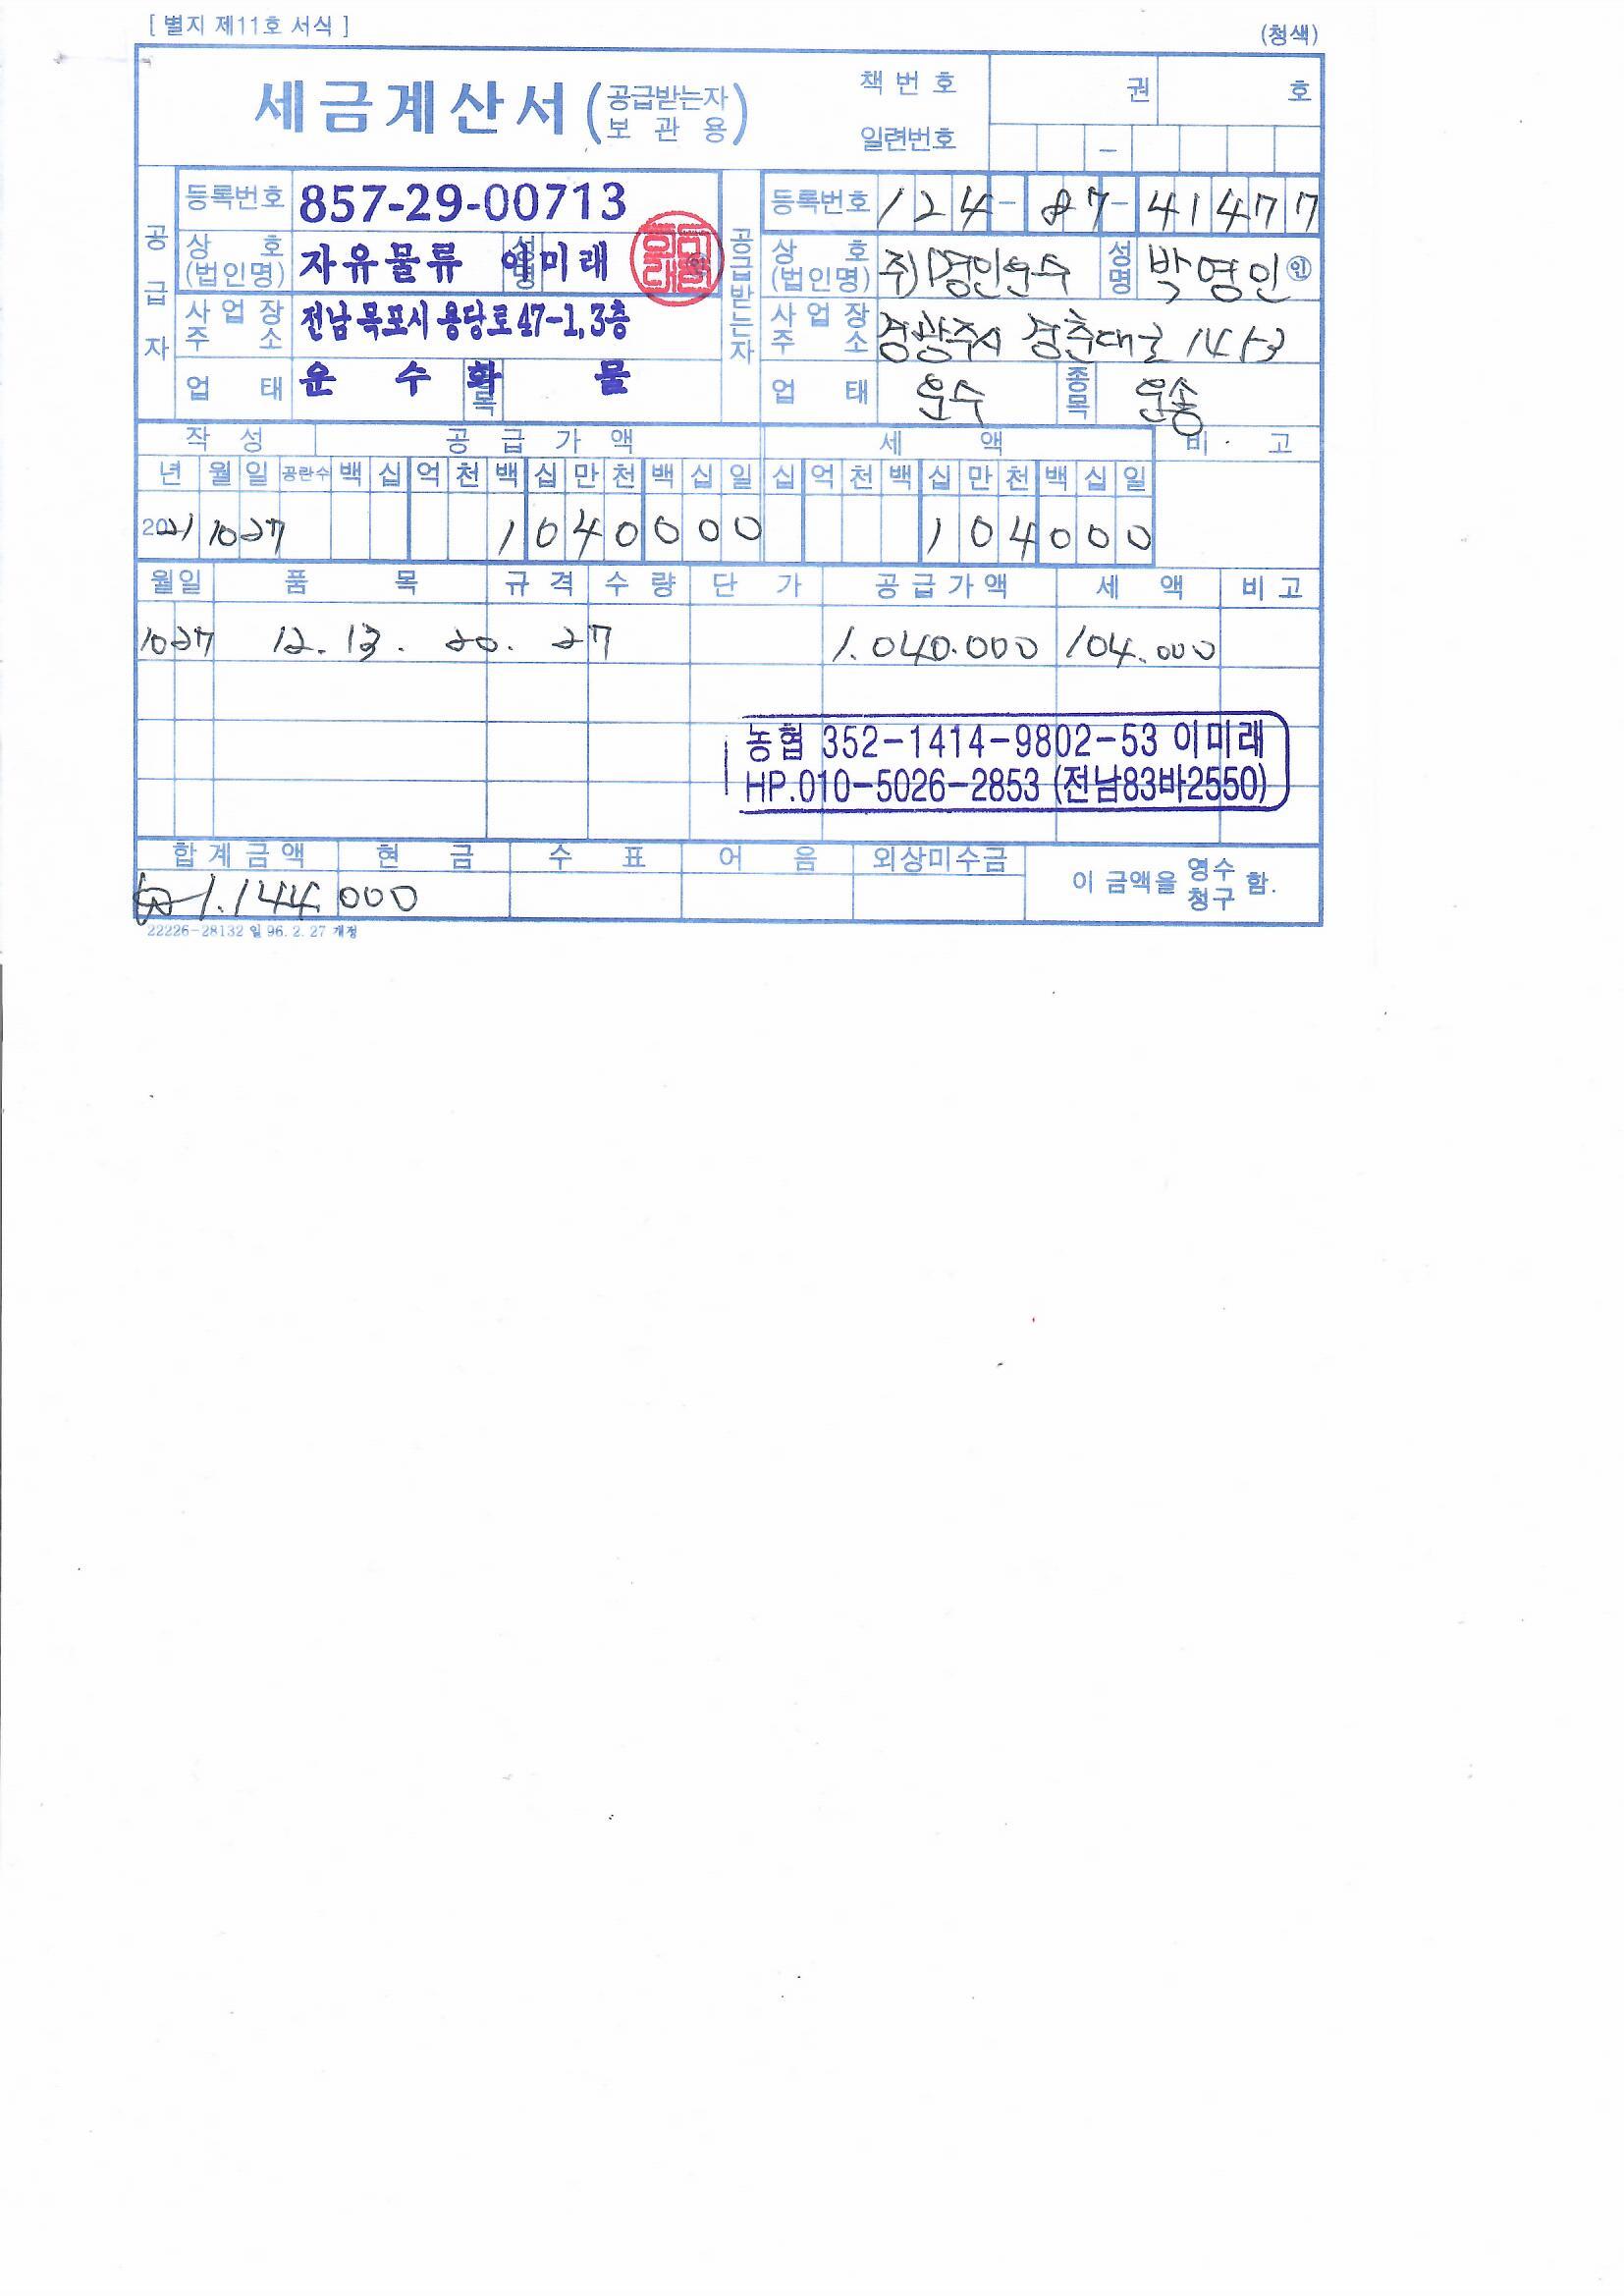 [ 별지 제11호 서식 ]
(청색)
세금계산서 (공급받는자 보관용)
책번호 권 호
일련번호 -
공급자
등록번호 857-29-00713
상호(법인명) 자유물류 성명 이미래 인
사업장주소 전남 목포시 용당로 47-1, 3층
업태 운수 종목 화물
공급받는자
등록번호 124-87-41477
상호(법인명) 주)명인운수 성명 박영인 인
사업장주소 경광주시 경춘대로
업태 운수 종목 운송
작성 공급가액 세액 비고
년 월 일 공란수 백 십 억 천 백 십 만 천 백 십 일 십 억 천 백 십 만 천 백 십 일
2021 10 27 1 0 4 0 0 0 0 1 0 4 0 0 0
월일 품목 규격 수량 단가 공급가액 세액 비고
10 27 12. 13. 20. 27 1.040.000 104.000
농협 352-1414-9802-53 이미래
HP.010-5026-2853 (전남83바2550)
합계금액 현금 수표 어음 외상미수금 이 금액을 영수 청구 함.
₩1.144.000
22226-28132 일 96. 2. 27 개정